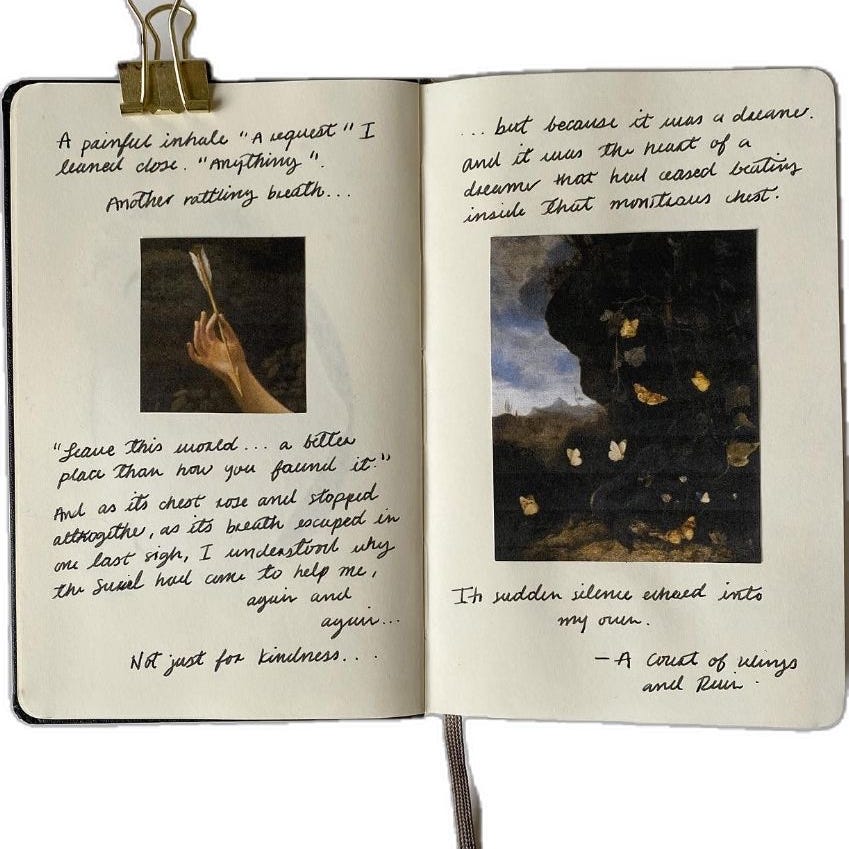 A painful inhale "A request" I
leaned close. "Anything".
Another rattling breath...
"Leave this world... a better
place than how you found it."
And as its chest rose and stopped
altogether, as its breath escaped in
one last sigh, I understood why
the Suriel had come to help me,
again and
again...
Not just for kindness....
... but because it was a dreamer.
and it was the heart of a
dreamer that had ceased beating
inside that monstrous chest.
Its sudden silence echoed into
my own.
— A Court of Wings
and Ruin.